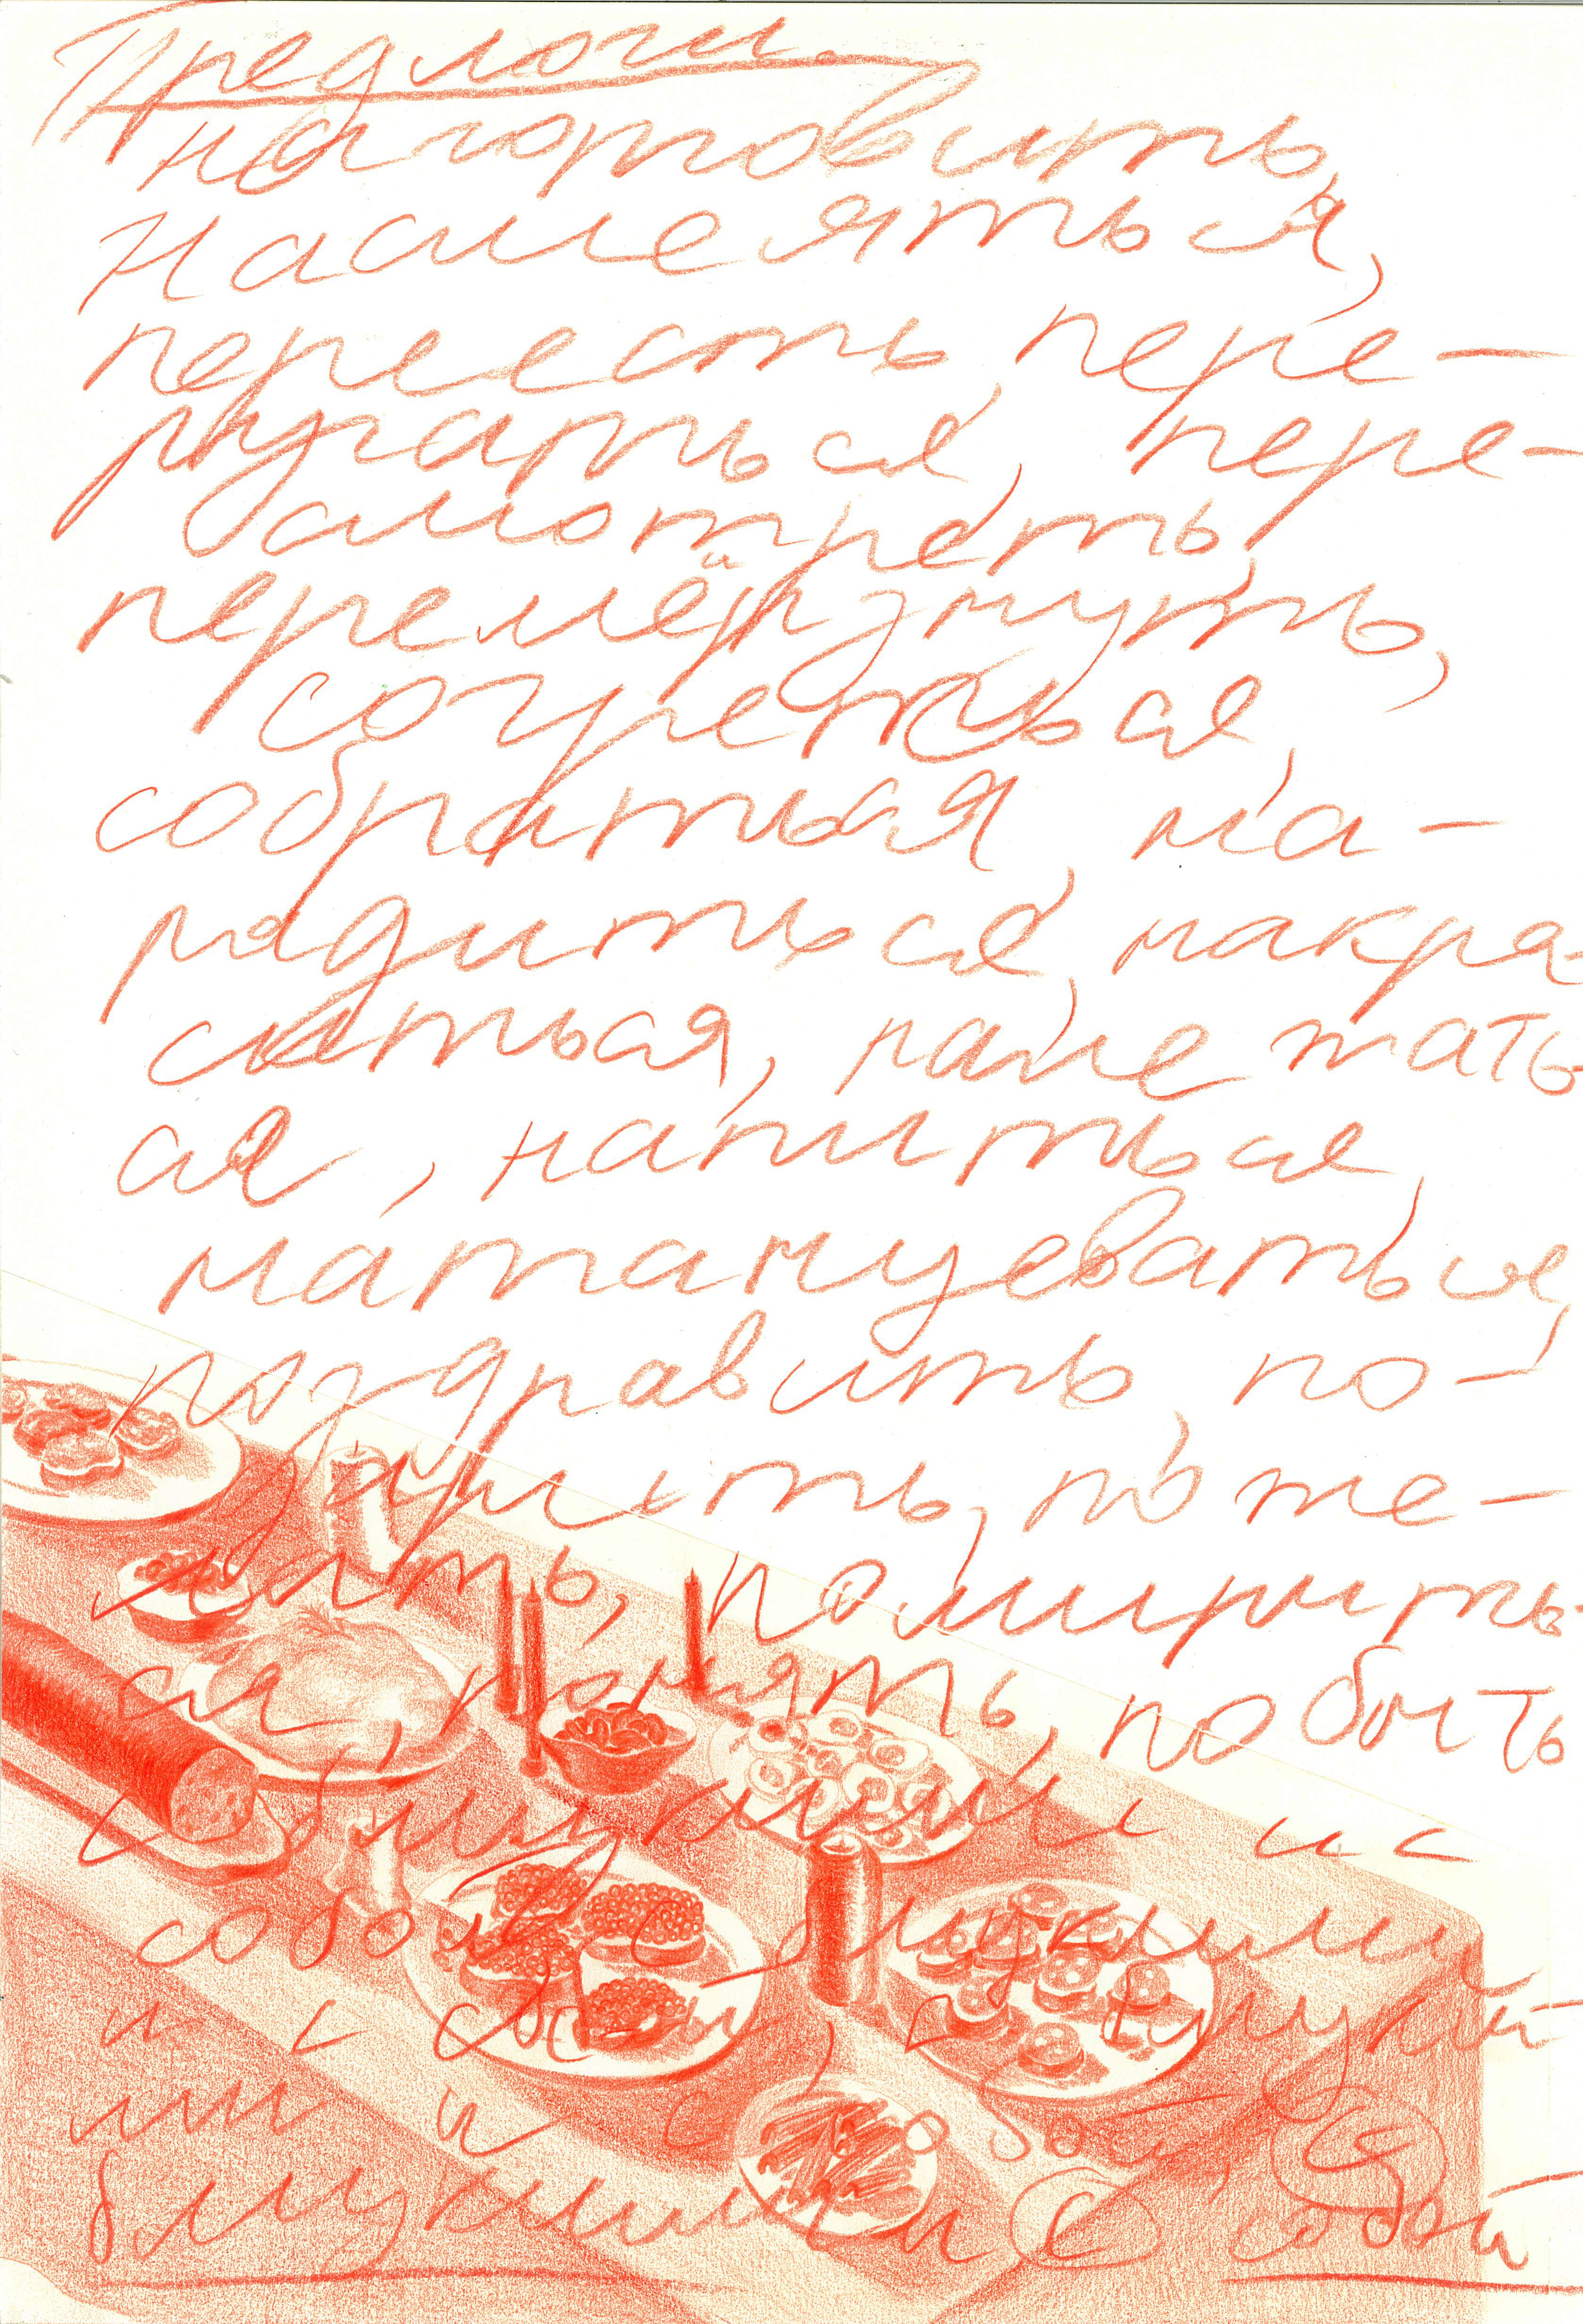 Предлоги.
наготовить,
насмеяться,
переесть, пере-
ругаться, пере-
смотреть,
перемёрзнуть,
согреться,
собраться, на-
рядиться, накра-
ситься, наметать
ся, напиться,
натанцеваться,
поздравить, по-
дарить, поже-
лать, помирить-
ся, понять, побыть
с близкими и с
собой, с близкими
и с собой, с близки-
ми и с собой, с
близкими и с собой